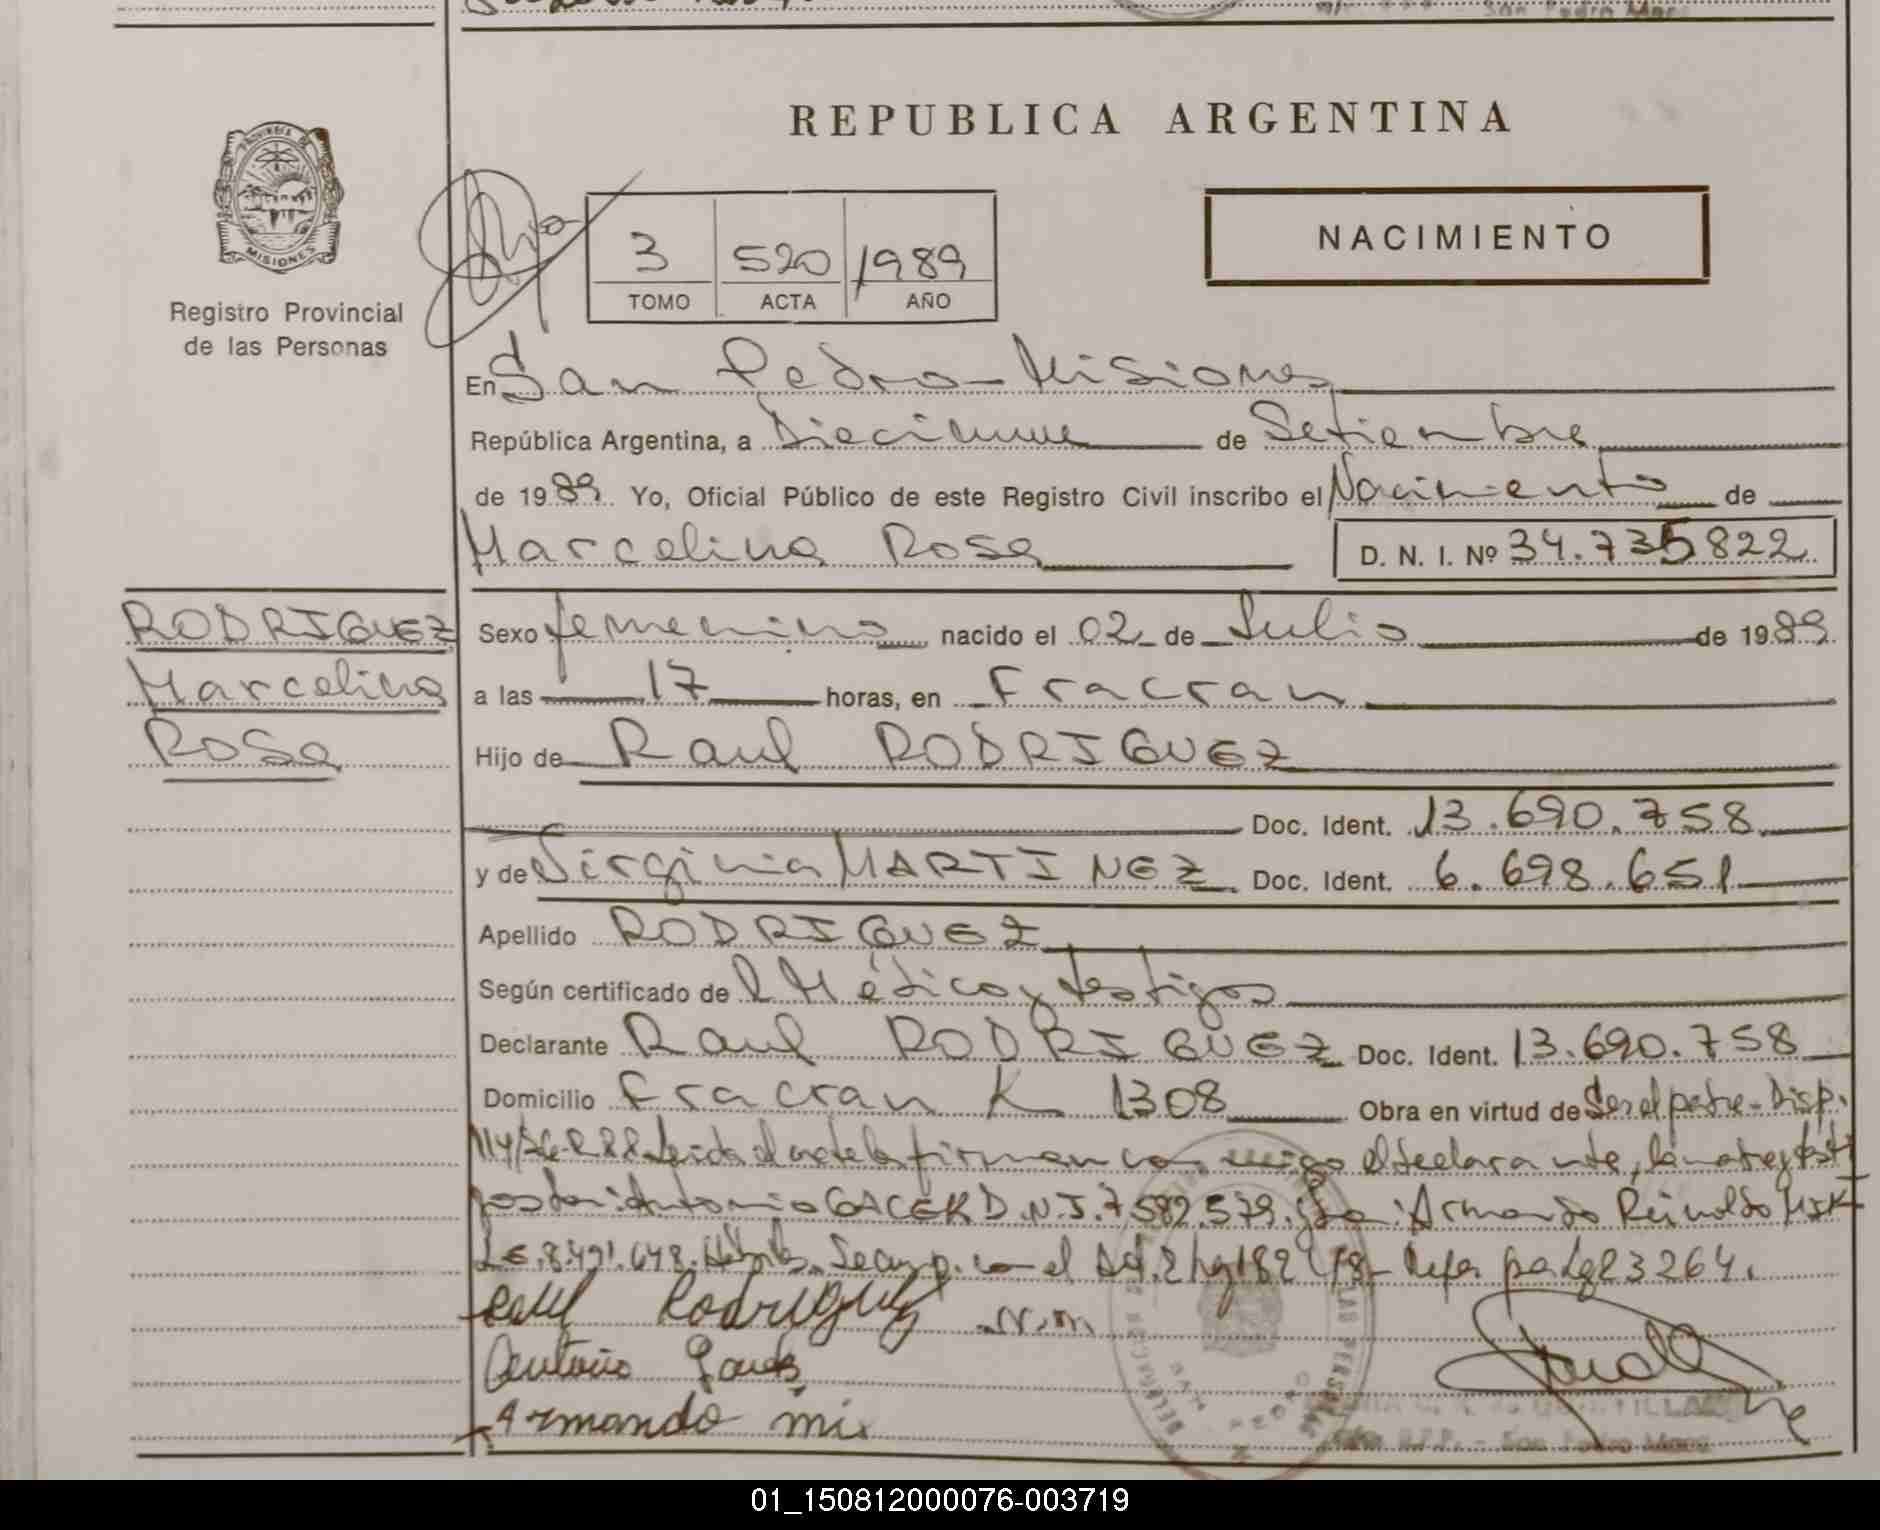 REPUBLICA ARGENTINA
PROVINCIA DE
MISIONES
Registro Provincial
de las Personas
3 520 1989
TOMO ACTA AÑO
NACIMIENTO
En San Pedro - Misiones
República Argentina, a Diecinueve de Setiembre
de 1989. Yo, Oficial Público de este Registro Civil inscribo el Nacimiento de
Marcelina Rosa D. N. I. Nº 34.735822
RODRIGUEZ
Marcelina
Rosa
Sexo femenino nacido el 02 de Julio de 1989
a las 17 horas, en Fracran
Hijo de Raul RODRIGUEZ
Doc. Ident. 13.690.758
y de Virginia MARTINEZ Doc. Ident. 6.698.651
Apellido RODRIGUEZ
Según certificado de l Médico y testigos
Declarante Raul RODRIGUEZ Doc. Ident. 13.690.758
Domicilio Fracran K 1308 Obra en virtud de Ser el padre - Disp.
leida el acta la firman conmigo el declarante, la madre y
Antonio D.N.I. 7.582.579. Armando Reinoldo
L.E. 8.491.648. con el por Ley 23264.
Raul Rodriguez N.M
Antonio
Armando
San Pedro Mnes
01_150812000076-003719